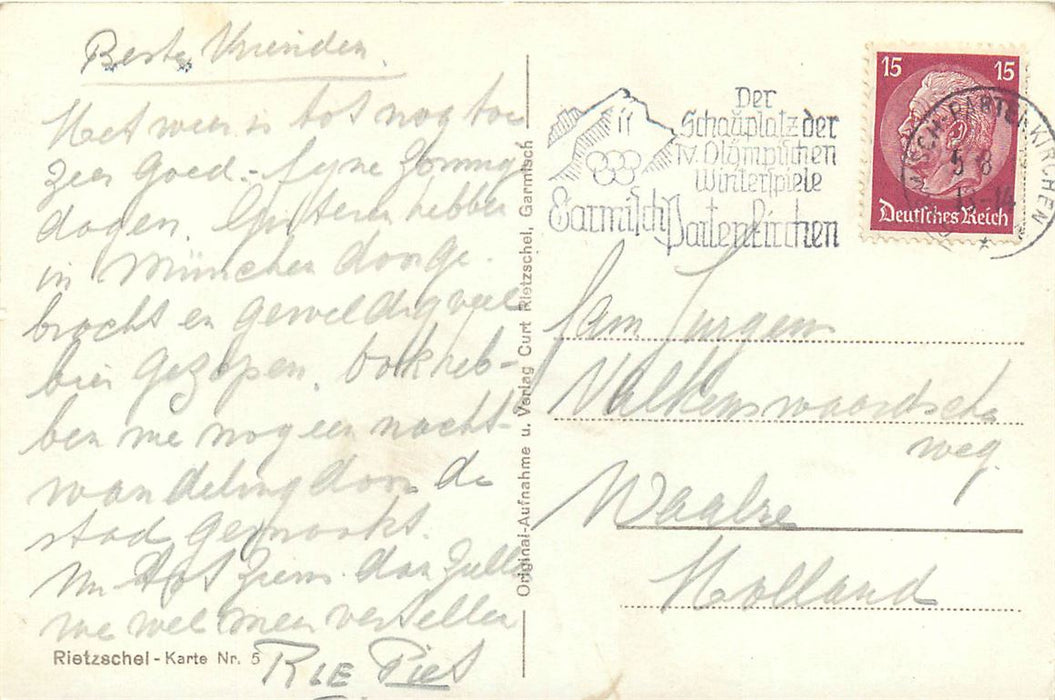 Beste Vrienden.
Het weer is tot nog toe
zeer goed. - fyne zonnige
dagen. Gisteren hebben
in München doorge-
bracht en geweldig veel
bier gezopen. Ook heb-
ben we nog een nacht-
wandeling door de
stad gemaakt.
Nu tot ziens. dan zullen
we wel meer vertellen
RIE Piet
Rietzschel - Karte Nr. 5
Original-Aufnahme u. Verlag Curt Rietzschel, Garmisch
Der
Schauplatz der
IV. Olympischen
Winterspiele
Garmisch Partenkirchen
15 15
Deutsches Reich
PARTENKIRCHEN
Jurgens
Valkenswaardsche
weg.
Waalre
Holland